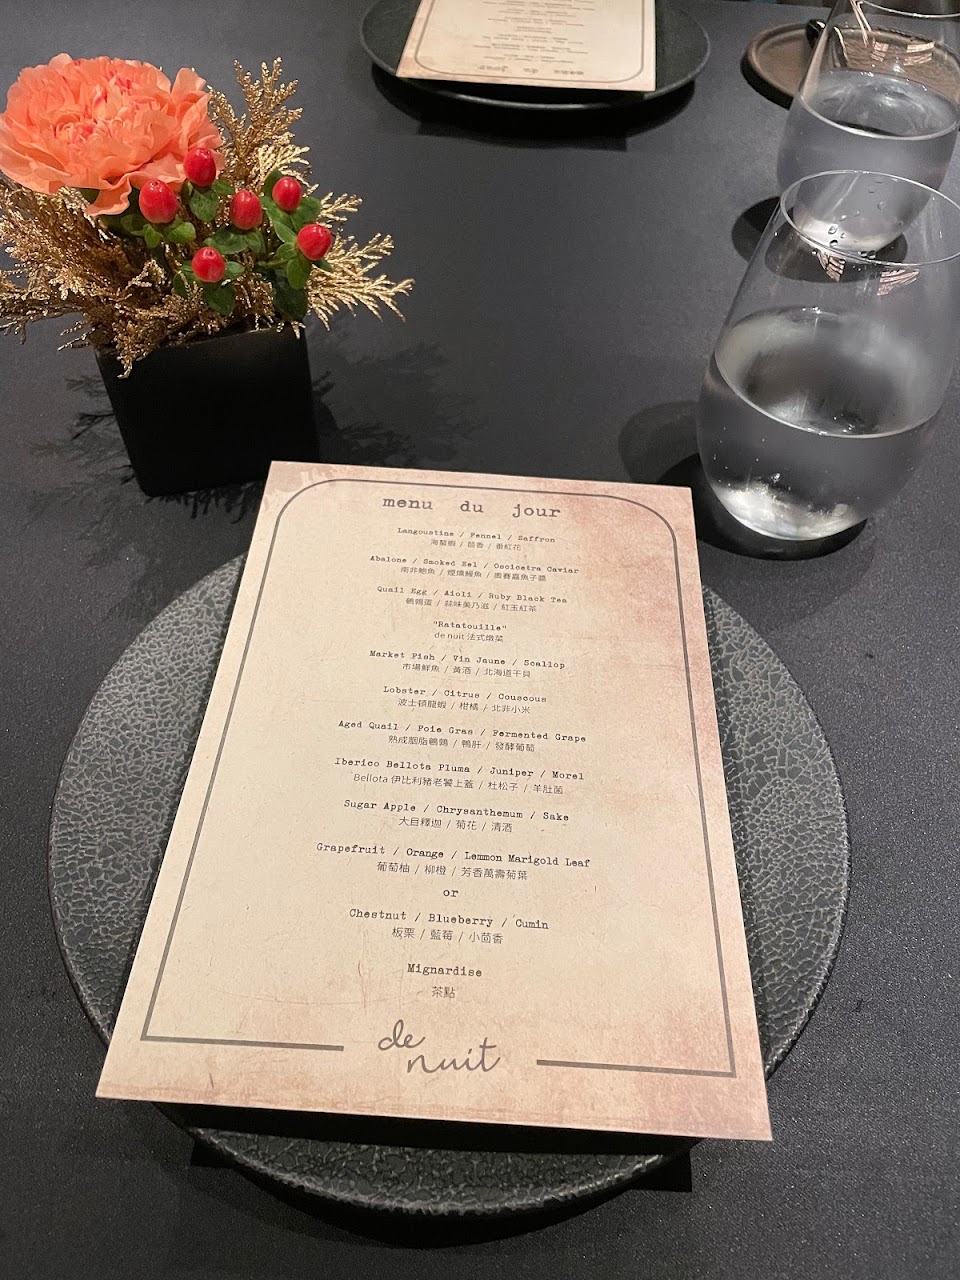 menu du jour
Langoustine / Fennel / Saffron
海螯蝦 / 茴香 / 番紅花
Abalone / Smoked Eel / Oscicetra Caviar
南非鮑魚 / 煙燻鰻魚 / 奧賽嘉魚子醬
Quail Egg / Aioli / Ruby Black Tea
鵪鶉蛋 / 蒜味美乃滋 / 紅玉紅茶
"Ratatouille"
de nuit 法式燉菜
Market Fish / Vin Jaune / Scallop
市場鮮魚 / 黃酒 / 北海道干貝
Lobster / Citrus / Couscous
波士頓龍蝦 / 柑橘 / 北非小米
Aged Quail / Foie Gras / Fermented Grape
熟成胭脂鵪鶉 / 鴨肝 / 發酵葡萄
Iberico Bellota Pluma / Juniper / Morel
Bellota 伊比利豬老饕上蓋 / 杜松子 / 羊肚菌
Sugar Apple / Chrysanthemum / Sake
大目釋迦 / 菊花 / 清酒
Grapefruit / Orange / Lemmon Marigold Leaf
葡萄柚 / 柳橙 / 芳香萬壽菊葉
or
Chestnut / Blueberry / Cumin
板栗 / 藍莓 / 小茴香
Mignardise
茶點
de
nuit